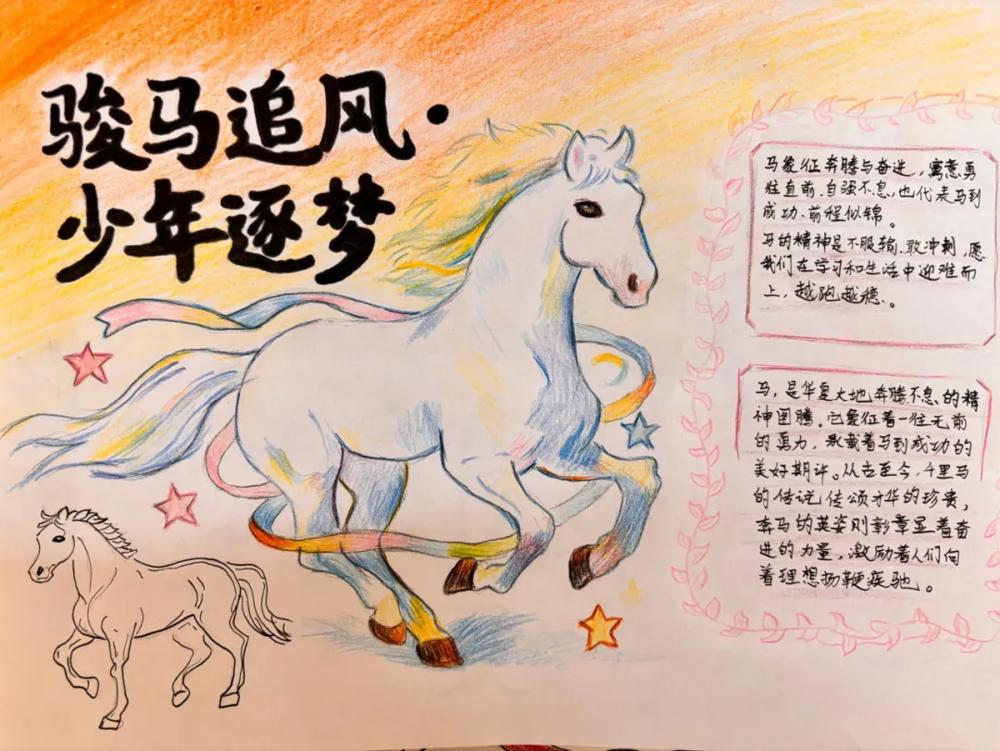 骏马追风·
少年逐梦
马象征奔腾与奋进，寓意勇
往直前、自强不息，也代表马到
成功、前程似锦。
马的精神是不服输、敢冲刺，愿
我们在学习和生活中迎难而
上，越跑越稳。
马，是华夏大地奔腾不息的精
神图腾。它象征着一往无前
的勇力，承载着马到成功的
美好期许。从古至今，千里马
的传说传颂才华的珍贵，
奔马的英姿则彰章显着奋
进的力量，激励着人们向
着理想扬鞭疾驰。